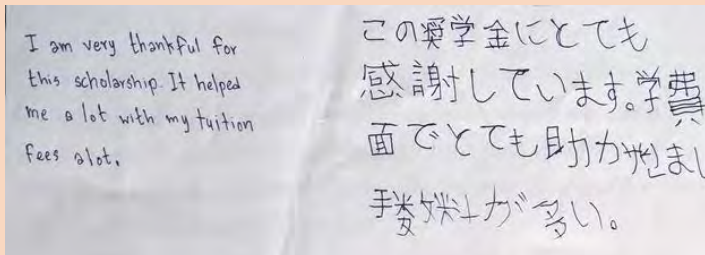 I am very thankful for
this scholarship. It helped
me a lot with my tuition
fees alot.
この奨学金にとても
感謝しています。学費
面でとても助かりまし
が多い。